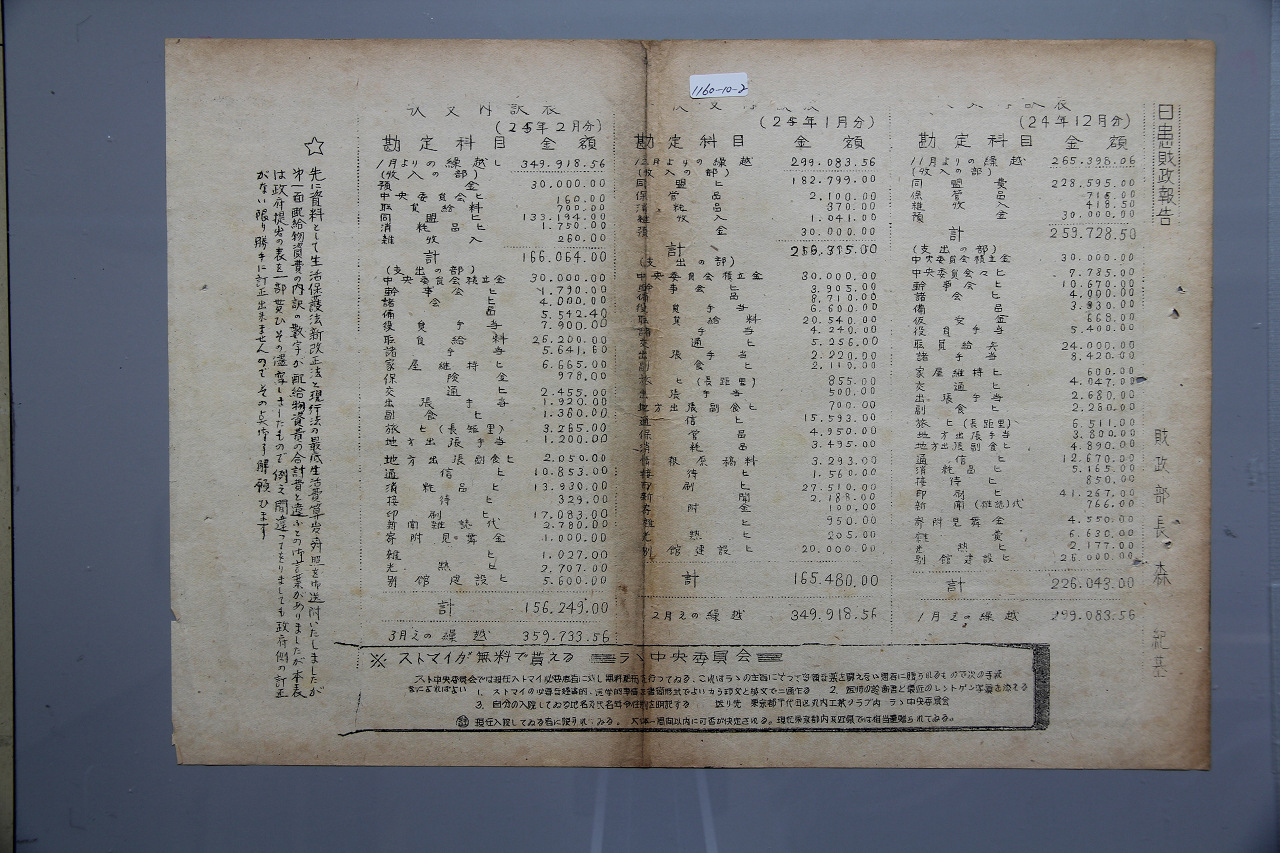 1160-10-2
日患財政報告
財政部長 森 紀基
(24年12月分)
勘定科目 金額
11月よりの繰越 265.398.06
(收入の部)
同盟費 228.595.00
保管品 715.00
雑收入 418.50
預金 30.000.00
計 259.728.50
(支出の部)
中央委員会積立金 30.000.00
中央委員会々ヒ 7.785.00
幹事会ヒ 10.670.00
諸会ヒ 4.000.00
備品 3.930.00
仮安金 668.00
役員手当 5.400.00
職員給夫 24.000.00
諸手当 8.420.00
家屋維持ヒ 600.00
交通ヒ 4.047.00
出張手当 2.680.00
副食ヒ 2.280.00
旅ヒ(長距里) 6.511.00
地方出張手当 3.800.00
地方出張副食ヒ 4.890.00
通信ヒ 12.670.00
消耗品ヒ 5.165.00
接待ヒ 850.00
印刷ヒ 41.267.00
新聞(雑誌)代 766.00
寄附見舞金 4.550.00
雑費 6.630.00
光熱ヒ 2.177.00
別舘建設ヒ 26.000.00
計 226.043.00
1月えの繰越 299.083.56
(25年1月分)
勘定科目 金額
12月よりの繰越 299.083.56
(收入の部)
同盟ヒ 182.799.00
保管品 2.100.00
消耗品 370.00
雑收入 1.041.00
預金 30.000.00
計 256.315.00
(支出の部)
中央委員会積立金 30.000.00
幹事会ヒ 3.905.00
備品 8.710.00
役員手当 6.600.00
職員給料 20.540.00
諸手当 4.240.00
交通ヒ 5.256.00
出張手当 2.220.00
副食ヒ 2.110.00
旅ヒ(長距里) 855.00
出張手当 500.00
地方出張副食ヒ 700.00
通信ヒ 15.593.00
保管品 4.950.00
消耗品 3.495.00
根原稿料 3.293.00
接待ヒ 1.560.00
印刷ヒ 27.510.00
新聞 2.188.00
寄附金 100.00
雑ヒ 950.00
光熱ヒ 205.00
別舘建設ヒ 20.000.00
計 165.480.00
2月えの繰越 349.918.56
收支内訳表
(25年2月分)
勘定科目 金額
1月よりの繰越し 349.918.56
(收入の部)
預金 30.000.00
中央委員会ヒ 160.00
職員給料 700.00
同盟ヒ 133.194.00
消耗品ヒ 1.750.00
雑收入 260.00
計 166.064.00
(支出の部)
中央委員会積立金 30.000.00
幹事会ヒ 1.790.00
諸会ヒ 4.000.00
備品 5.542.40
役員手当 7.900.00
職員給料 26.200.00
諸手当 5.641.60
家屋維持ヒ 6.665.00
保険金 978.00
交通ヒ 2.455.00
出張手当 1.920.00
副食ヒ 1.380.00
旅ヒ(長距里) 3.265.00
地方出張手当 1.200.00
地方出張副食ヒ 2.050.00
通信ヒ 10.853.00
消耗品ヒ 13.930.00
接待ヒ 329.00
印刷ヒ 17.083.00
新聞雑誌代 2.780.00
寄附見舞金 1.000.00
雑ヒ 1.027.00
光熱ヒ 2.707.00
別舘建設ヒ 5.600.00
計 156.249.00
3月えの繰越 359.733.56
☆ 先に資料として生活保護法新改正法と現行法の最底生活費算出対照を御送附いたしましたが
第一面配給物資費の内訳の数字が配給物資費の合計費と違ふとの御言葉がありましたが本表
は政府提出の表を一部貰ひその儘写しましたもので例え間違ってをりましても政府側の訂正
がない限り勝手に訂正出来ませんのでその点惇す解願ひます
※ ストマイが無料で貰える ララ中央委員会
スト中央委員会では担任ストマイ必要患者に対し無料配布を行ってゐる、
1. ストマイの必要な経済的、医学的事情を書簡形式でよいから邦文と英文で二通作る 2. 医師の診断書と最近のレントゲン写真を添える
3. 自分の入院してゐる地名及氏名年令性別を明記する 送り先 東京都千代田区丸内工業クラブ内 ララ中央委員会
現在入院してゐる者に限られてゐる。大体一週間以内に可否が決定される。現在東京都内及近県では相当量贈られてゐる。